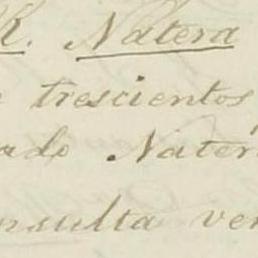 R. Natera
trescientos
ado Nater
nsulta ver